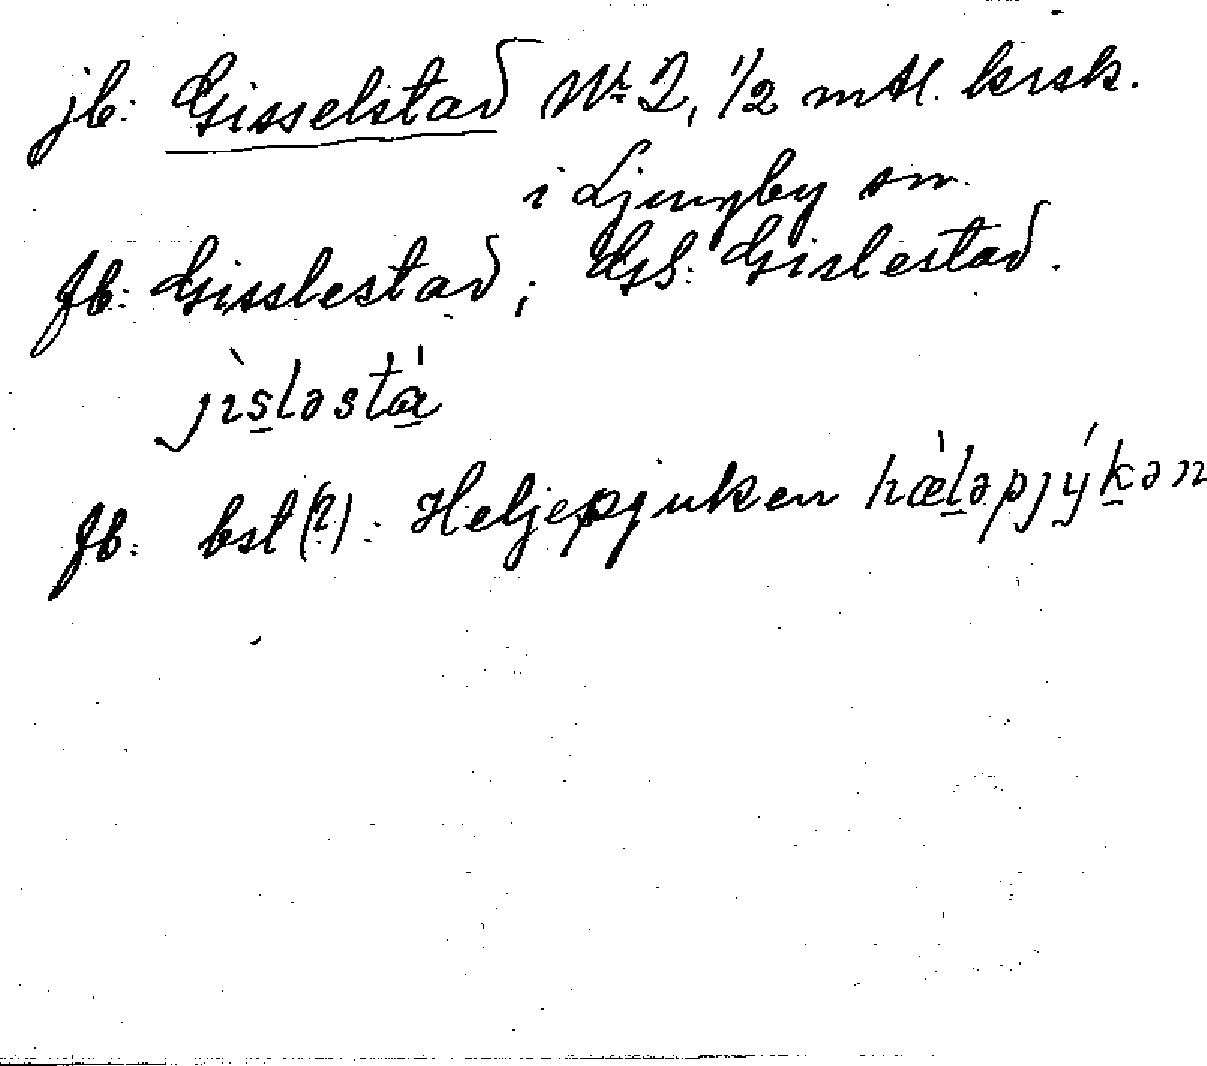 jb: Gisselstad Nr 2, 1/2 mtl. krsk.
i Ljungby sn.
fb: Gisslestad; GS: Gislestad.
jìsləstá
fb: bst(?): Heljepjuken hæ̀ləpjýkən